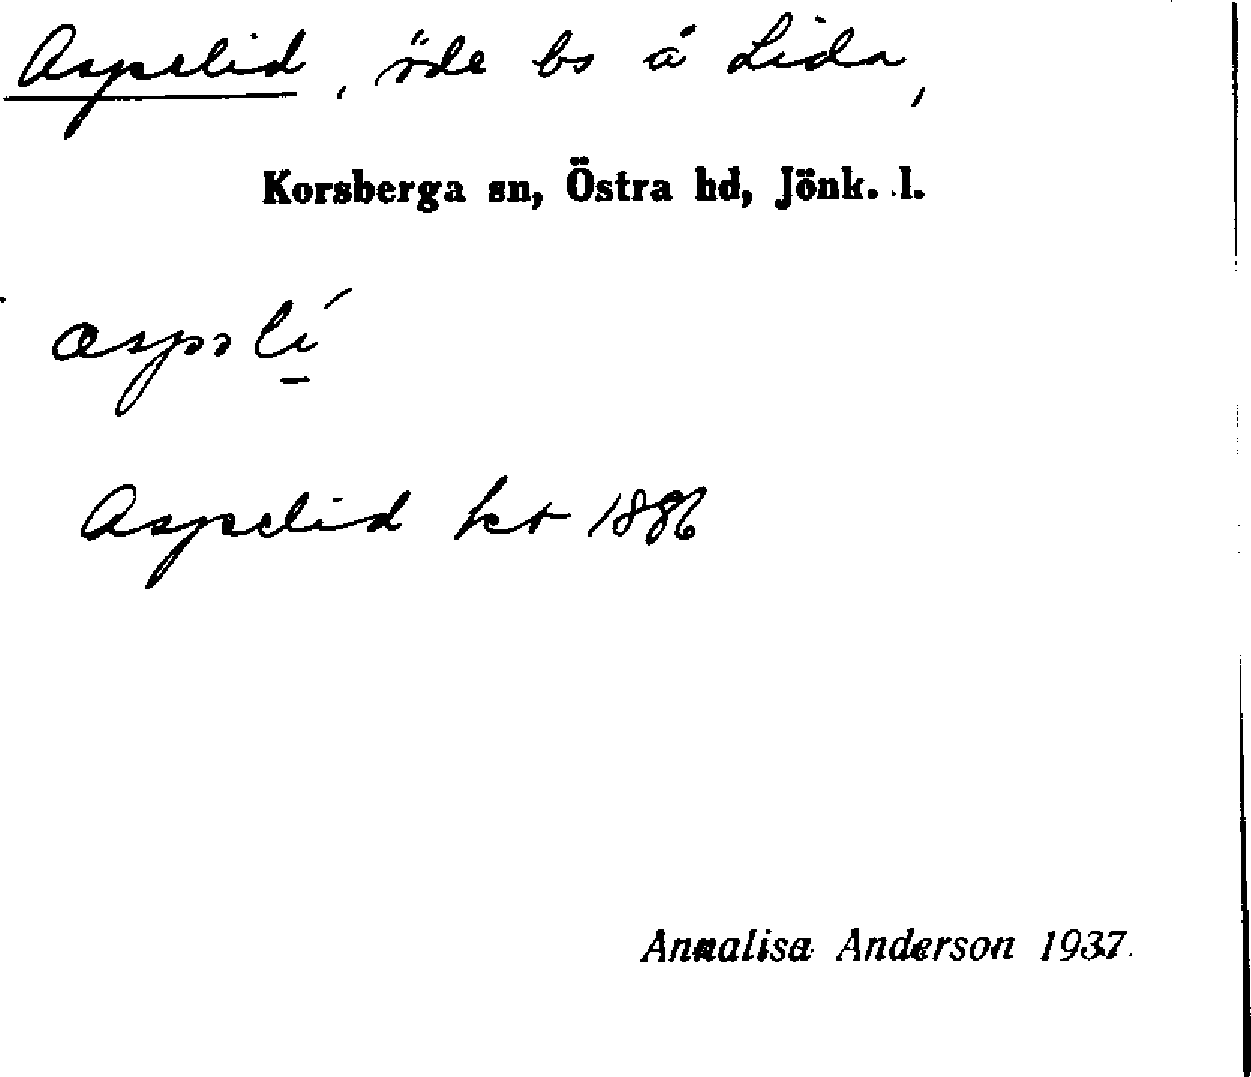 Aspelid, öde bs å Lida,
Korsberga sn, Östra hd, Jönk. l.
Aspelid kt 1886
Annalisa Anderson 1937.